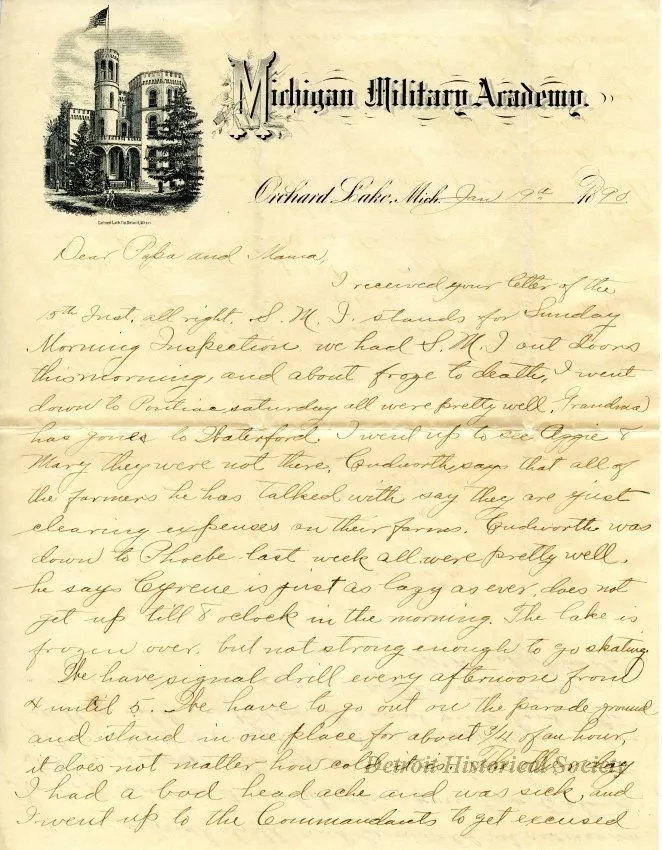 Michigan Military Academy.
Orchard Lake, Mich. Jan 19th 1890
Dear Papa and Mama,
I received your letter of the
5th Inst. all right. S. M. I. stands for Sunday
Morning Inspection we had S. M. I out doors
this morning, and about froze to death, I went
down to Pontiac saturday all were pretty well. Grandma
has gone to Waterford. I went up to see Aggie &
Mary they were not there. Cudworth says that all of
the farmers he has talked with say they are just
clearing expenses on their farms. Cudworth was
down to Phoebe last week all were pretty well.
he says Cyrene is just as lazy as ever, does not
get up till 8 oclock in the morning. The lake is
frozen over, but not strong enough to go skating.
We have signal drill every afternoon from
4 until 5. We have to go out on the parade ground
and stand in one place for about 3/4 of an hour,
it does not matter how cold it is. The other day
I had a bad head ache and was sick, and
I went up to the Commandants to get excused
Detroit Historical Society